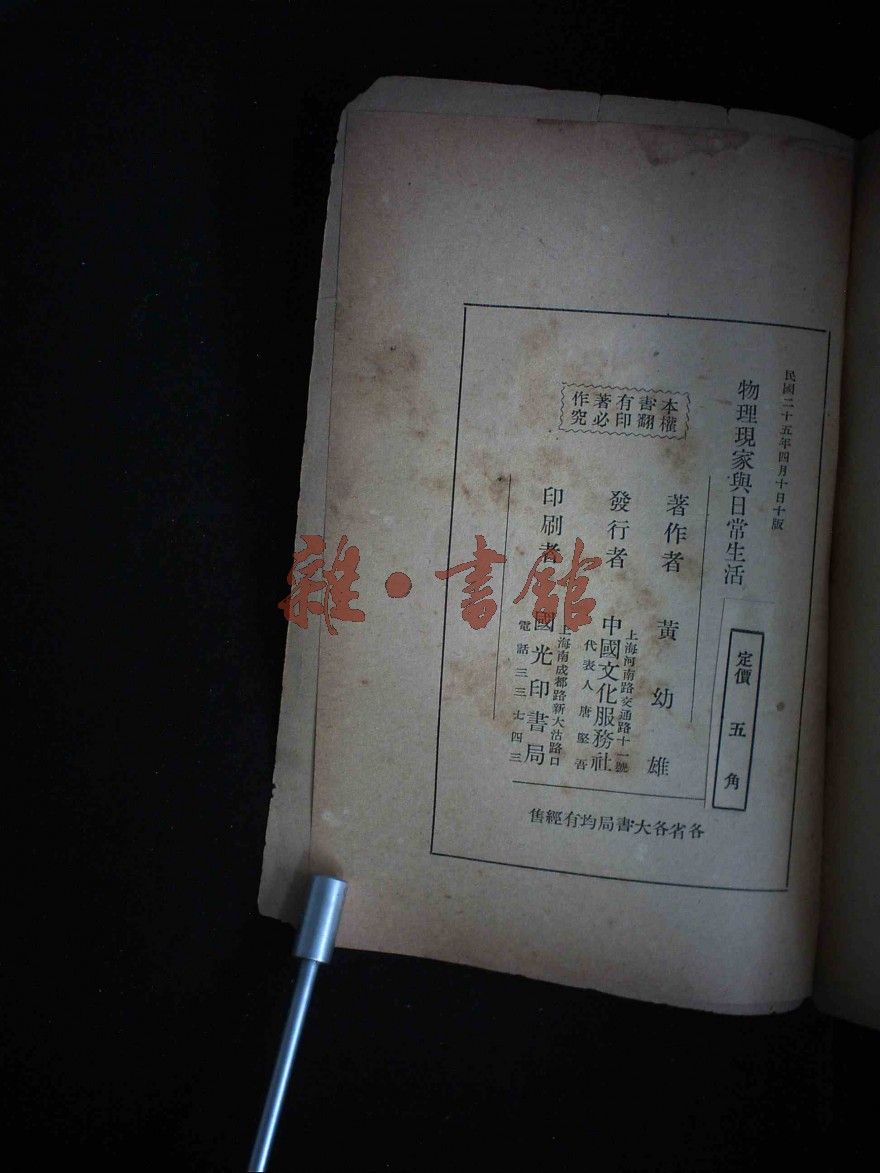 民國二十五年四月十日十版
物理現家與日常生活
定價 五角
本書有著作
權翻印必究
著作者 黃幼雄
發行者 中國文化服務社
上海河南路交通路十一號
代表人唐堅吾
印刷者 國光印書局
上海南成都路新大沽路口
電話三三七四三
各省各大書局均有經售
雜·書館